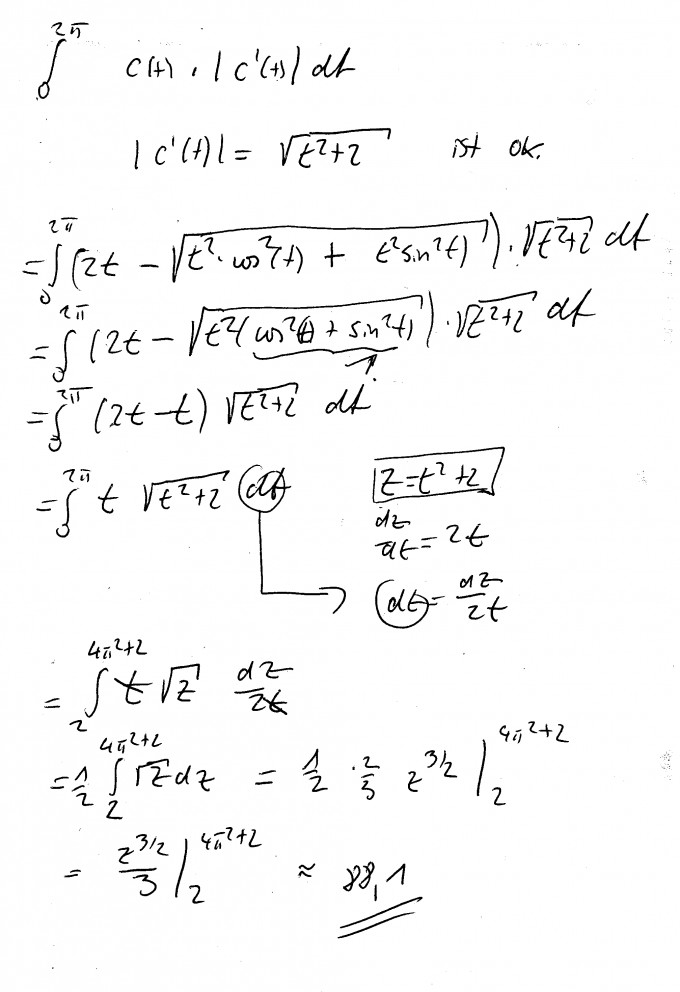 ∫₀^{2π} c(t) · |c'(t)| dt
|c'(t)| = √(t²+2) ist ok.
= ∫₀^{2π} (2t − √(t²·cos²(t) + t² sin²t)) · √(t²+2) dt
= ∫₀^{2π} (2t − √(t²(cos²(t) + sin²t))) · √(t²+2) dt
= ∫₀^{2π} (2t − t) √(t²+2) dt
= ∫₀^{2π} t √(t²+2) dt
z = t²+2
dz/dt = 2t
dt = dz/2t
= ∫₂^{4π²+2} t √z dz/2t
= 1/2 ∫₂^{4π²+2} √z dz = 1/2 · 2/3 z^{3/2} |₂^{4π²+2}
= z^{3/2}/3 |₂^{4π²+2} ≈ 88,1